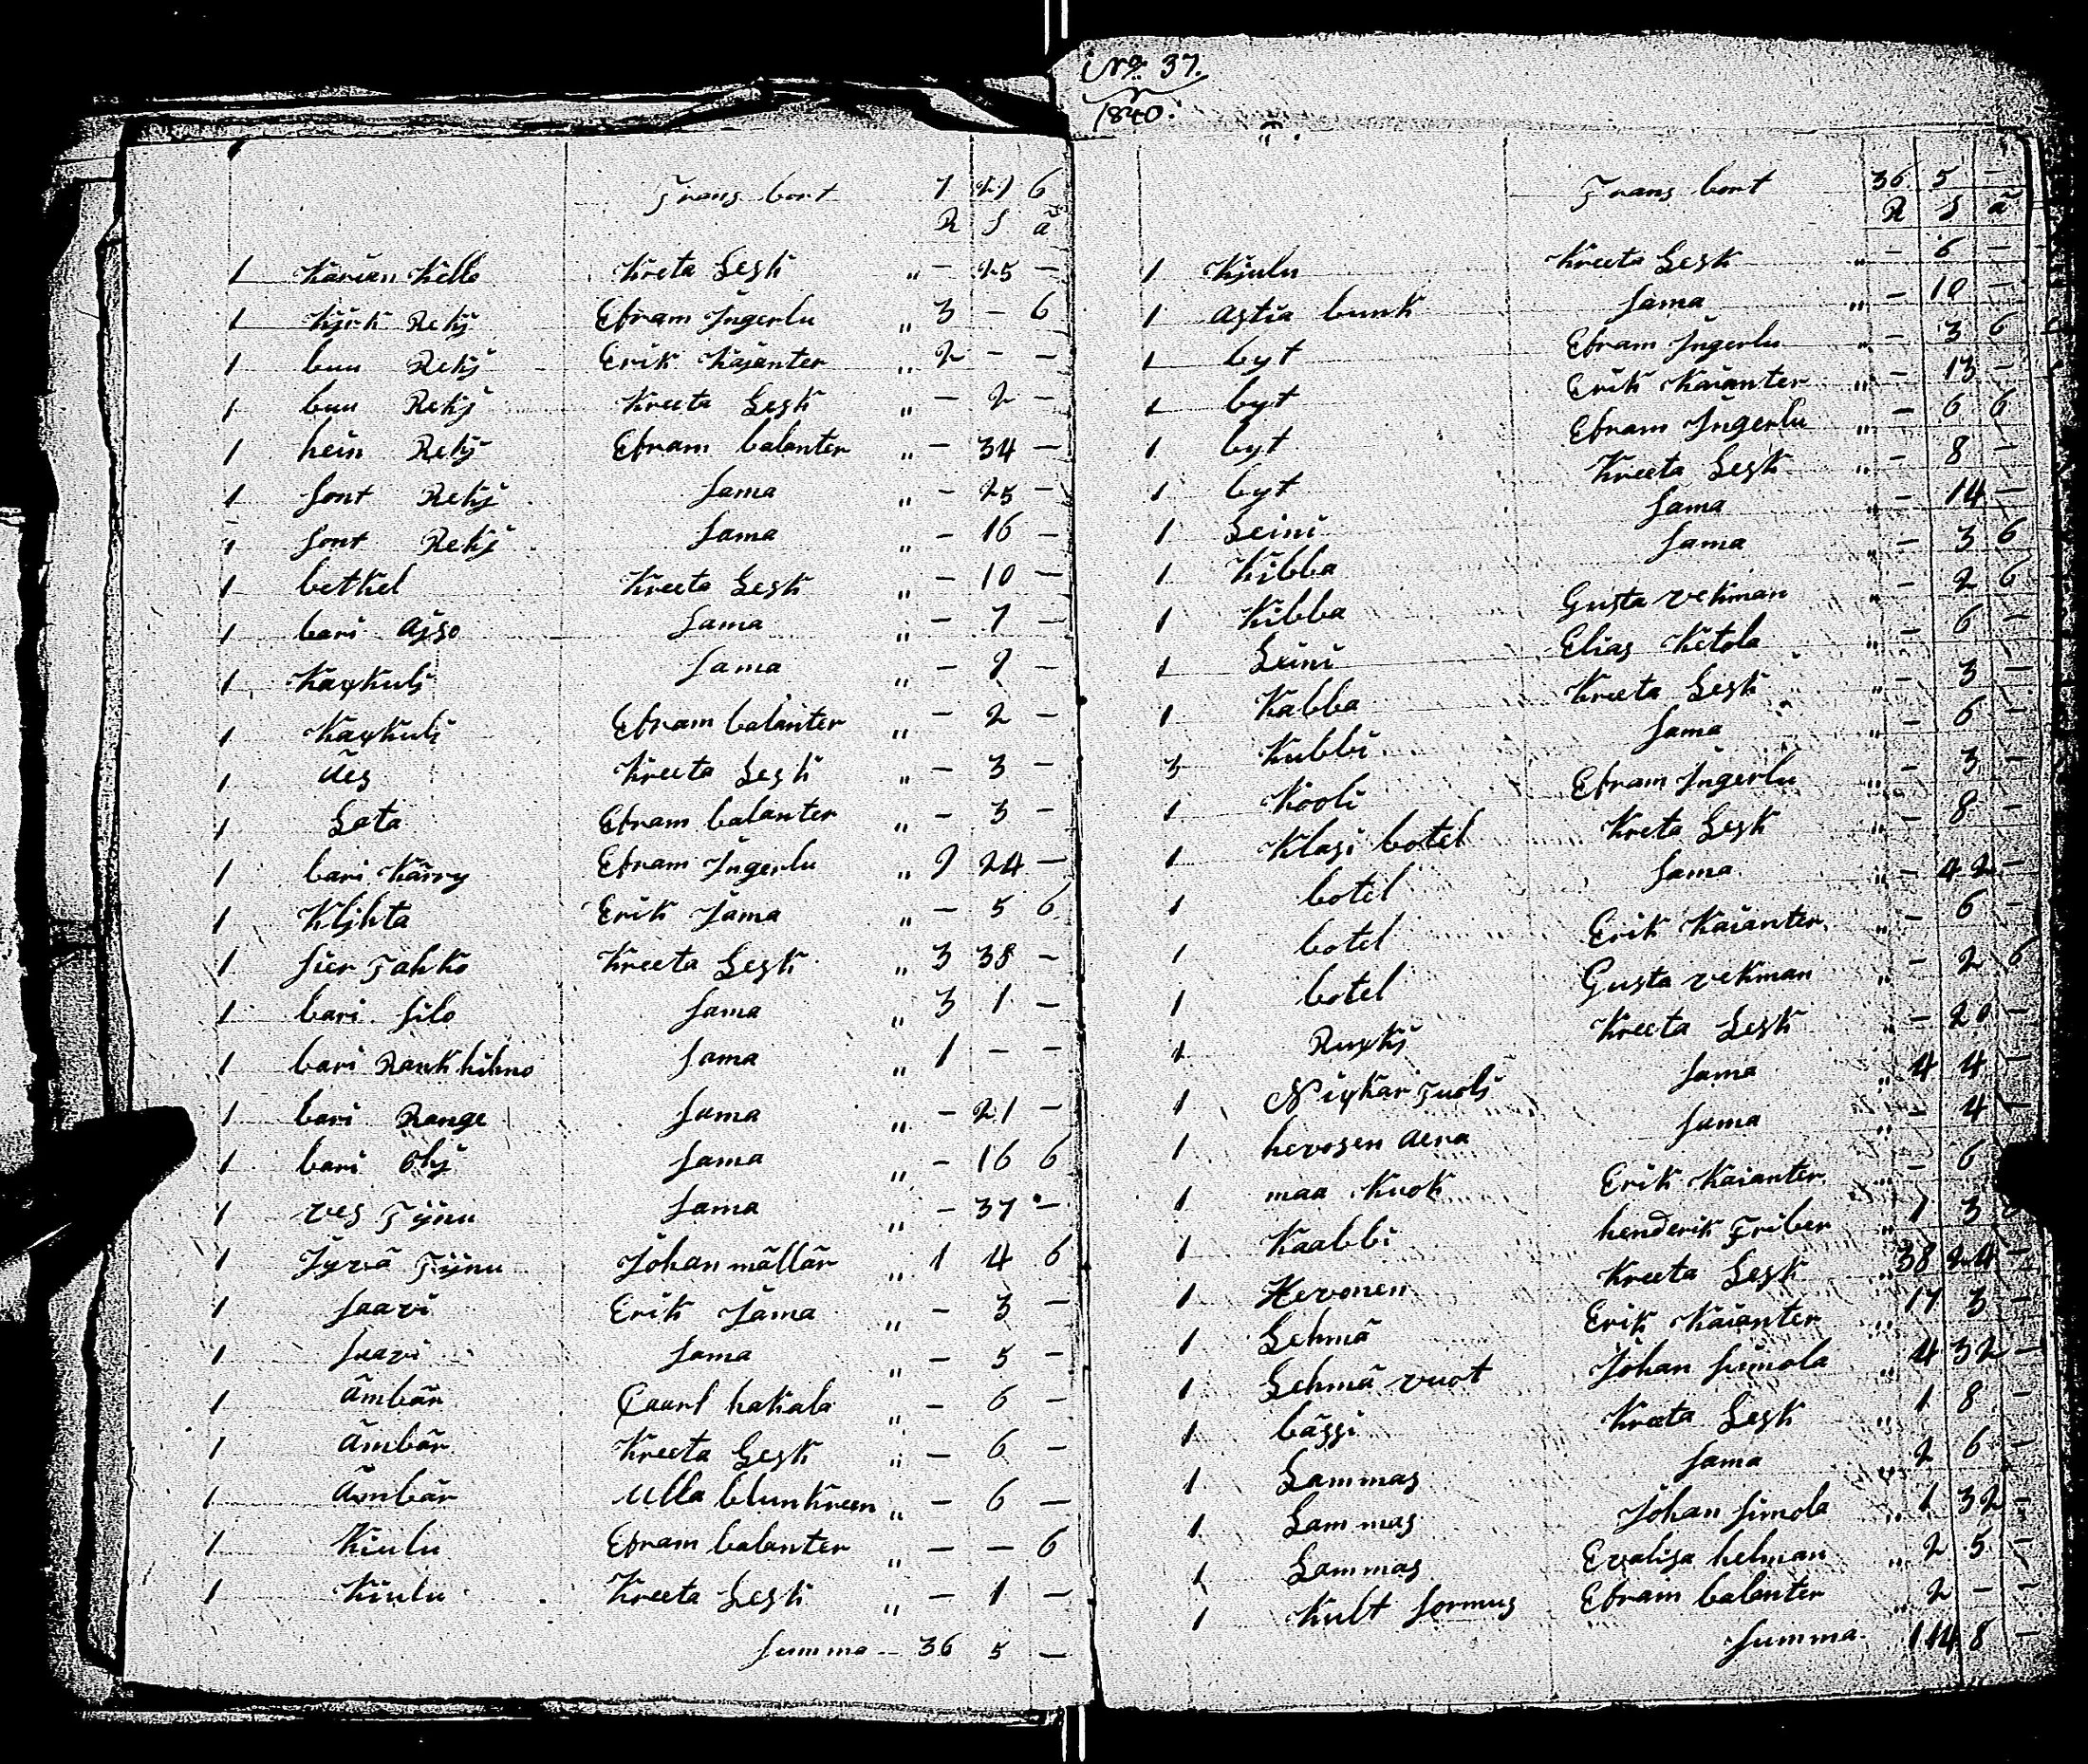 Trans bort 7 21 6
R S ä
1 Karian Kello Kreta Lesk " - 25 -
1 Kirk Rekj Efram Ingerlu " 3 - 6
1 buu Rekj Erik Kaianter " 2 - -
1 buu Rekj Kreeta Lesk " - 2 -
1 hein Rekj Efram balanter " - 34 -
1 sont Rekj sama " - 25 -
1 sont Rekj sama " - 16 -
1 betkel Kreeta Lesk " - 10 -
1 bari Ajso sama " - 7 -
1 Kaxkuli sama " - 9 -
1 Kaxkuli Efram balanter " - 2 -
1 Äes Kreeta Lesk " - 3 -
1 Lata Efram balanter " - 3 -
1 bari Kärry Efram Ingerlu " 9 24 -
1 Kljhta Erik Jama " - 5 6
1 sier Tahko Kreeta Lesk " 3 38 -
1 bari silo sama " 3 1 -
1 bari Rankhihno sama " 1 - -
1 bari Range sama " - 21 -
1 bari ohj sama " - 16 6
1 ves Tÿnu sama " - 37 -
1 Jyvä Tÿnu Johan mällär " 1 4 6
1 saavi Erik Jama " - 3 -
1 saavi sama " - 5 -
1 Ämbär Caarl hakala " - 6 -
1 Ämbär Kreeta Lesk " - 6 -
1 Ämbär Ulla blunkreen " - 6 -
1 Kiulu Efram balanter " - - 6
1 Kiulu Kreeta Lesk " - 1 -
summa - 36 5 -
No 37.
1840.
Trans bort 36 5 -
R S ä
1 Kjulu Kreeta Lesk " - 6 -
1 astia bunk sama " - 10 -
1 byt Efram Ingerlu " - 3 6
1 byt Erik Kaianter " - 13 -
1 byt Efram Ingerlu " - 6 6
1 byt Kreeta Lesk " - 8 -
1 Leini sama " - 14 -
1 Kibba sama " - 3 6
1 Kibba Gusta vekman " - 2 6
1 Leini Elias Ketola " - 6 -
1 Kabba Kreeta Lesk " - 3 -
3 Kubbi sama " - 6 -
1 Kooli Efram Ingerlu " - 3 -
1 Klasi botel Kreta Lesk " - 8 -
1 botel sama " - 42 -
1 botel Erik Kaianter " - 6 -
1 botel Gusta vekman " - 2 6
1 Ruxkj Kreeta Lesk " - 20 -
1 Niykar Tuoli sama " 4 4 -
1 hevosen aera sama " - 4 -
1 maa Kuok Erik Kaianter " - 6
1 Kaabbi henderik Friber " 1 3
1 Hevonen Kreeta Lesk " 38 24 -
1 Lehmä Erik Kaianter " 17 3 -
1 Lehmä vuot Johan simola " 4 32 -
1 bässi Kreeta Lesk " 1 8 -
1 Lammas sama " 2 6 -
1 Lammas Johan simola " 1 32 -
1 Lammas Evalisa helman " 2 5 -
1 Kult sormus Efraim balanter " 2 - -
summa 114 8 -